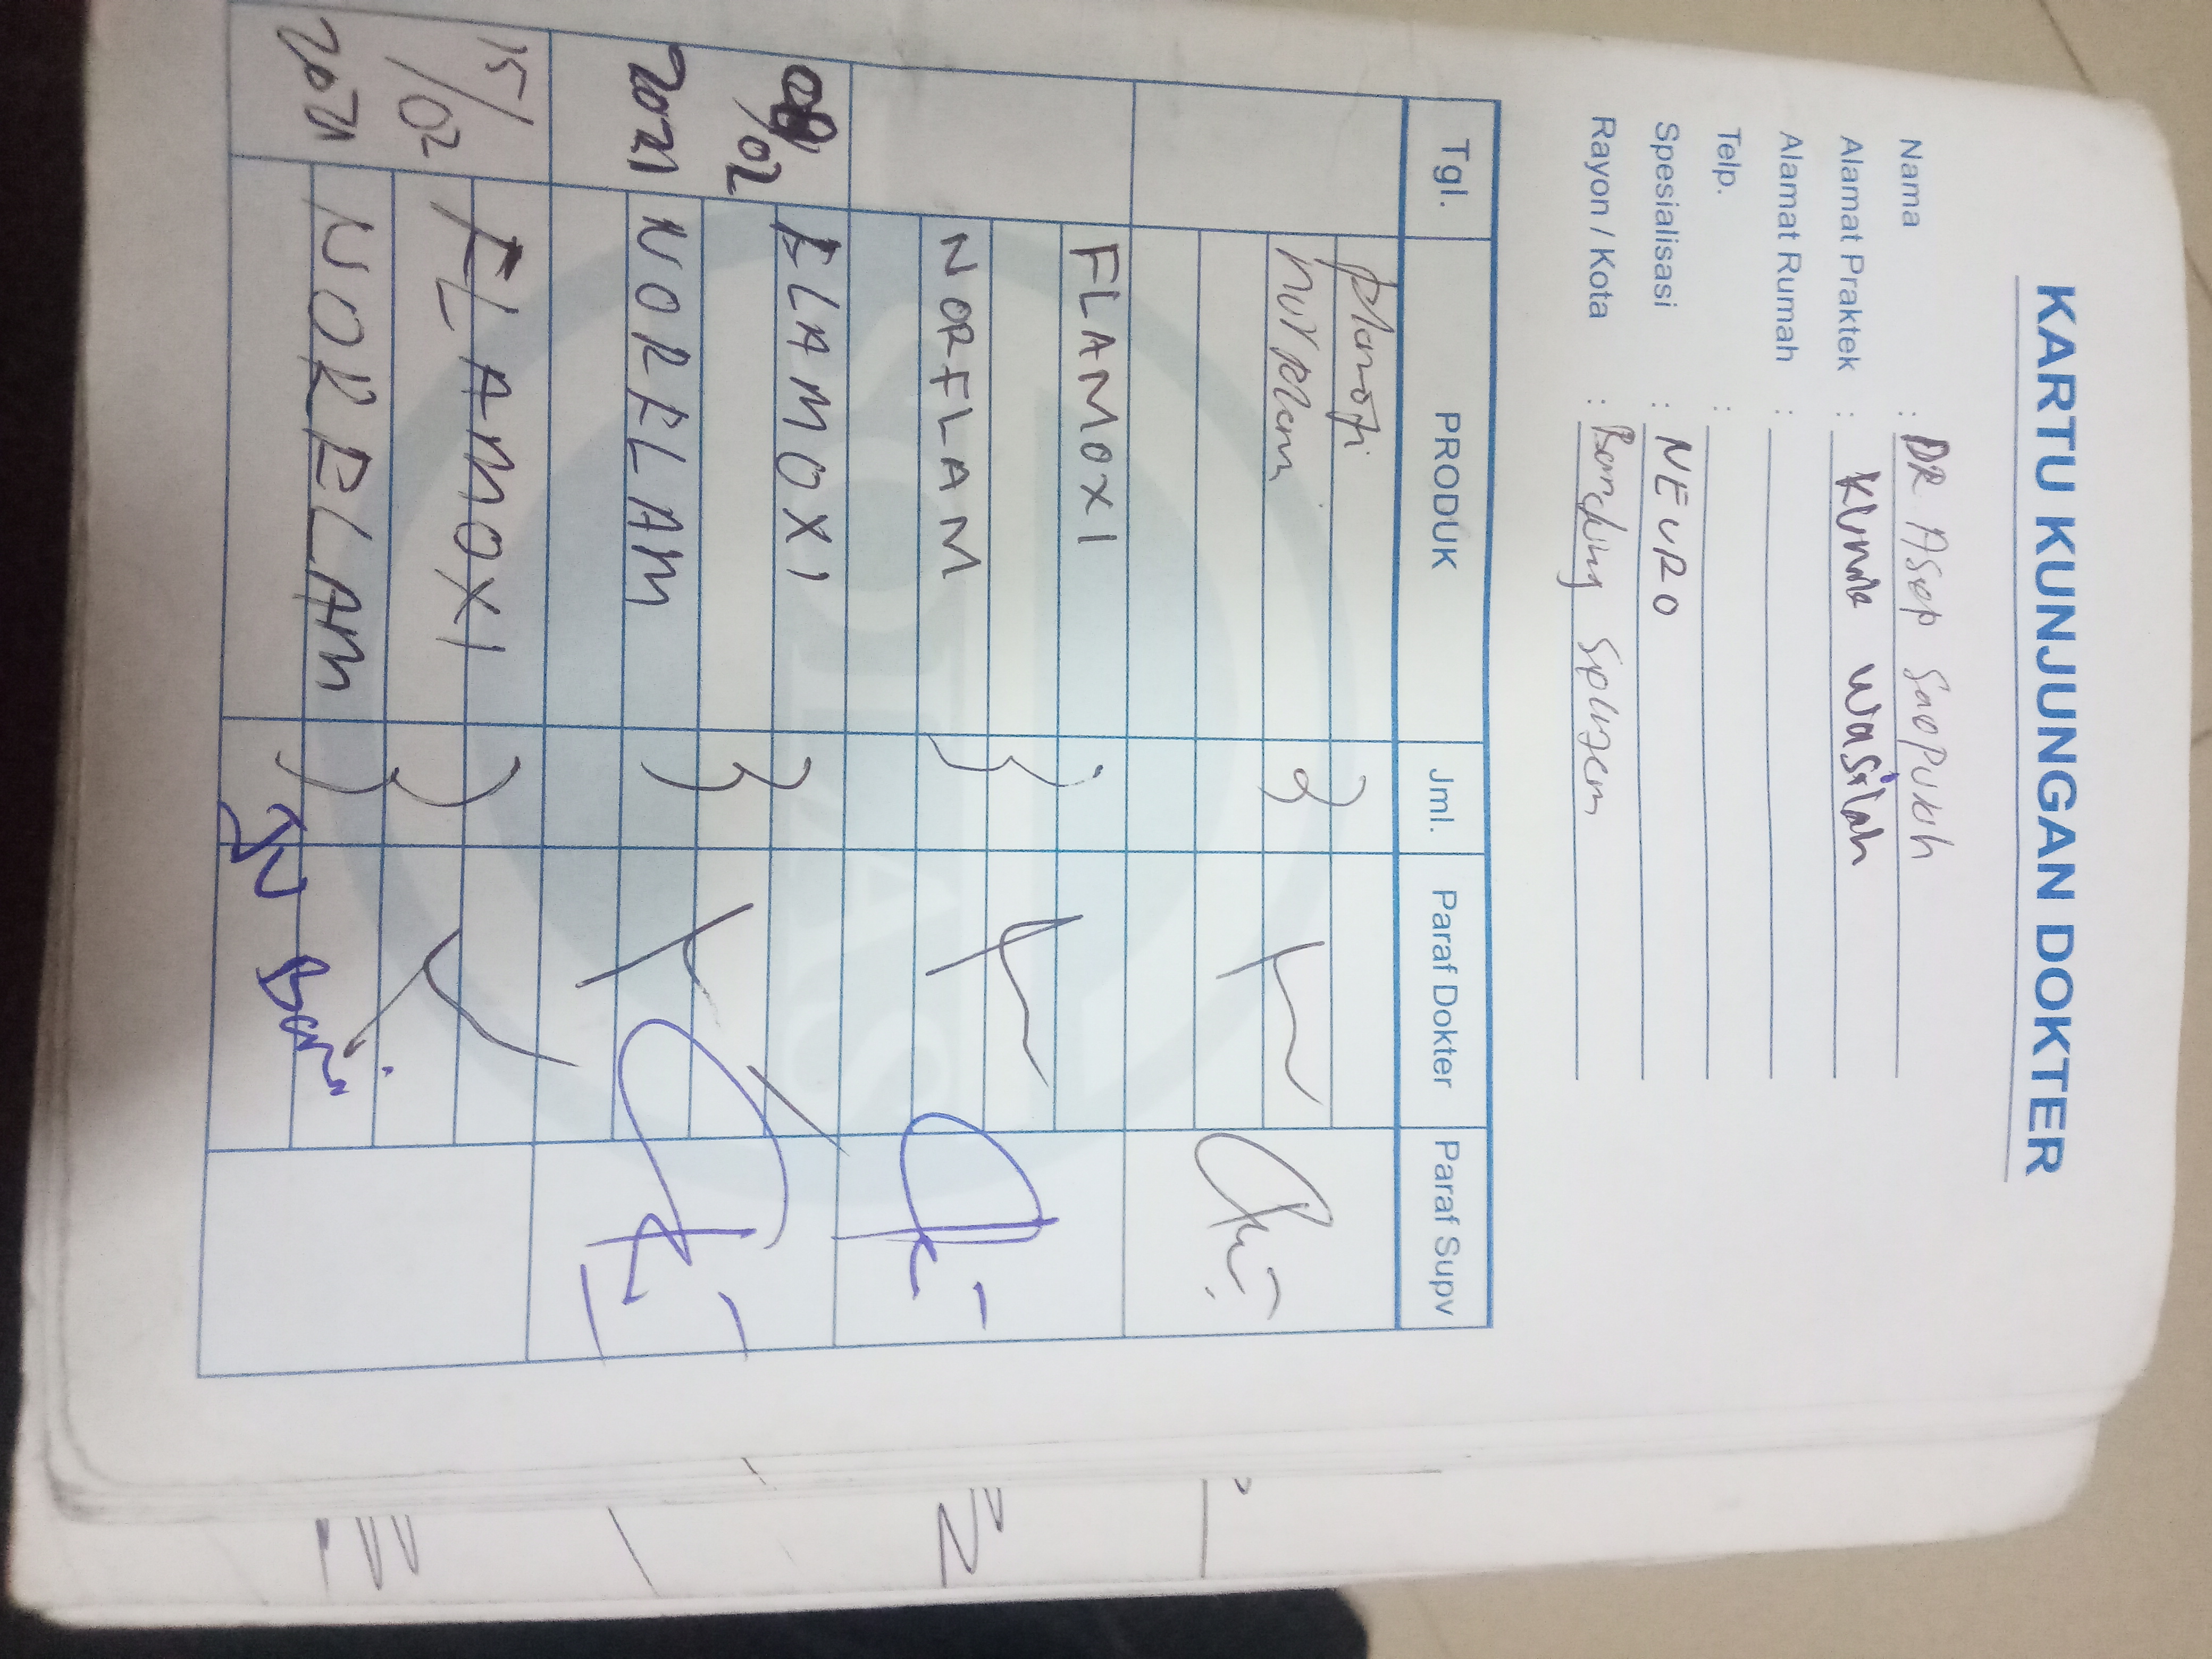 KARTU KUNJUNGAN DOKTER
Nama : DR Asep Saepuloh
Alamat Praktek : Kurnia Wasilah
Alamat Rumah :
Telp. :
Spesialisasi : NEURO
Rayon / Kota : Bandung
Tgl. PRODUK Jml. Paraf Dokter Paraf Supv
flamoxi
norflam
FLAMOXI
NORFLAM
08/02 FLAMOXI
2021 NORFLAM
15/02 FLAMOXI
2021 NORFLAM